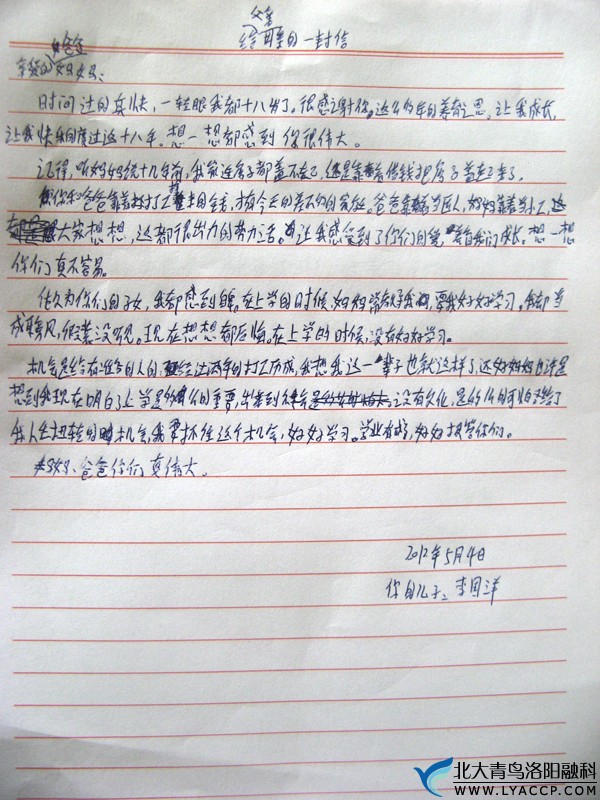 父亲
给母亲的一封信
爸爸
亲爱的妈妈:
时间过的真快,一转眼我都十八岁了。很感谢你这么多年的养育之恩,让我成长,
让我快乐的度过这十八年。想一想都感到你很伟大。
记得,听妈妈说十几年前,我家连房子都盖不起,还是靠着借钱把房子盖起来了。
你和爸爸靠着打工来还钱,才有今天的
大家想想,这都很出力的劳力活。让我感受到了你们的爱,着我们成长。想一想
你们真不容易。
作为你们的子女,我都感到自豪。在上学的时候,妈妈常教导我,要我好好学习。我都当
成耳旁风,假装没听见。现在想想都后悔。在上学的时候,没有好好学习。
机会是给有准备的人的,经过两年的打工而成,我想我这一辈子也就这样了还好妈妈
想到我现在明白了上学是多么的重要,没有文化,是多么的可怕
我人生扭转的机会,我要抓住这个机会,好好学习。学业有成,好好报答你们。
妈妈、爸爸你们真伟大。
2012年5月4日
你的儿子:李国洋
北大青鸟洛阳融科
WWW.LYACCP.COM